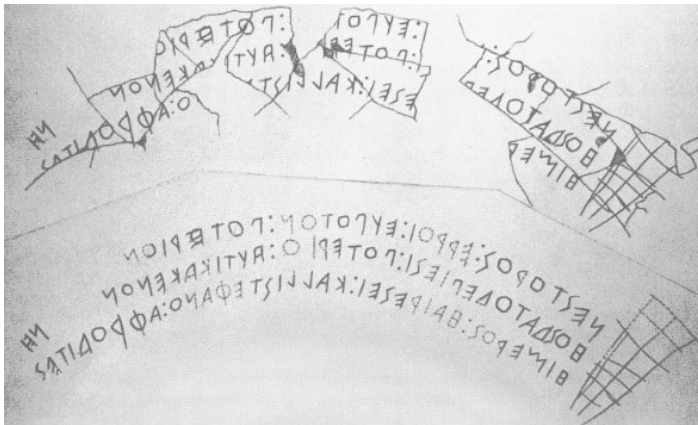 ΝΕΣΤΟΡΟΣ: :ΕΥΠΟΤ :ΠΟΤΕΡΙΟΝ
ΗΟΣΔΑΤΟΔΕΠ Ι:ΠΟΤΕΡ :ΑΥΤΙ ΚΑΚΕΝΟΝ
ΗΙΜΕΡ ΕΣΕΙ:ΚΑΛΛΙΣΤ Ο:ΑΦΡΟΔΙΤΕΣ
ΝΕΣΤΟΡΟΣ:ΕΡΡΟΙ:ΕΥΠΟΤΟΝ:ΠΟΤΕΡΙΟΝ
ΗΟΣΔΑΤΟΔΕΠΙΕΣΙ:ΠΟΤΕΡΙΟ:ΑΥΤΙΚΑΚΕΝΟΝ
ΗΙΜΕΡΟΣ:ΗΑΙΡΕΣΕΙ:ΚΑΛΛΙΣΤΕΦΑΝΟ:ΑΦΡΟΔΙΤΕΣ